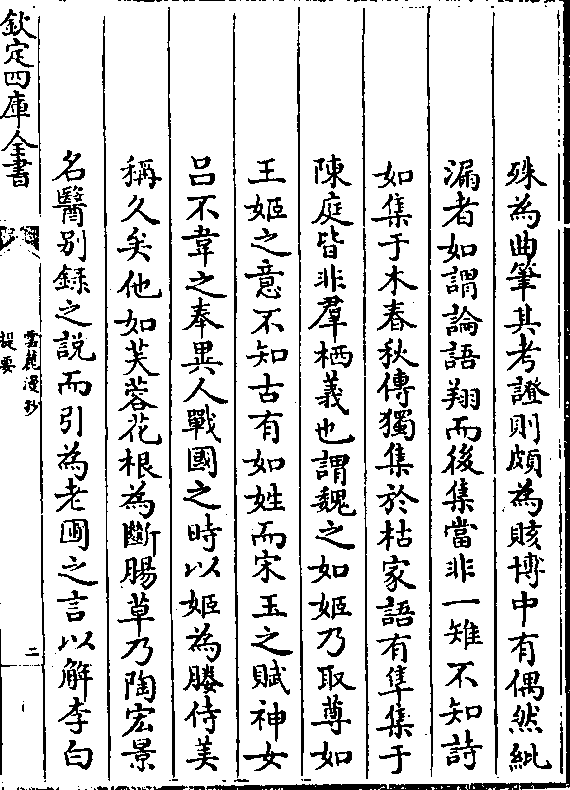 殊為曲筆其考證則頗為賅博中有偶然紕
漏者如謂論語翔而後集當非一雉不知詩
如集于木春秋傳獨集於枯家語有隼集于
陳庭皆非羣栖義也謂魏之如姬乃取尊如
王姬之意不知古有如姓而宋玉之賦神女
吕不韋之奉異人戰國之時以姬為媵侍美
稱久矣他如芙蓉花根為斷腸草乃陶宏景
名醫别録之説而引為老圃之言以解李白
欽定四庫全書
雲麓漫抄
提要
二